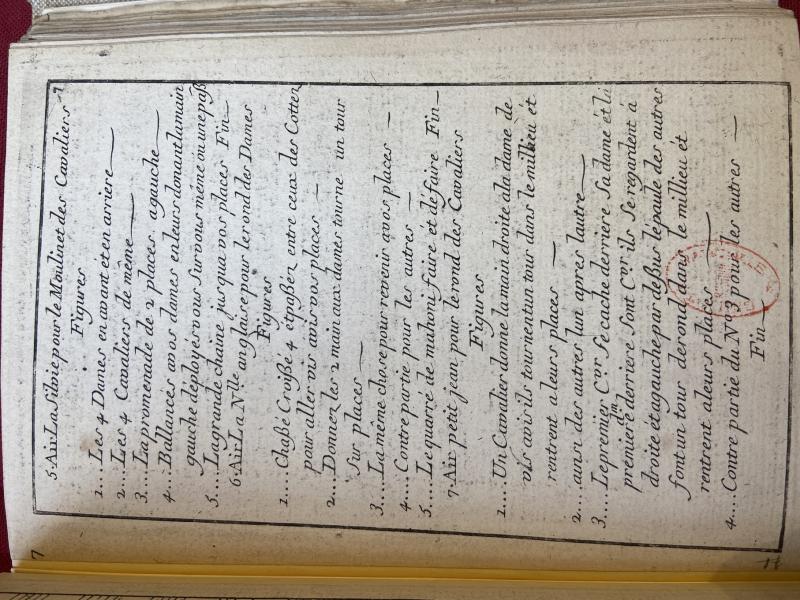 7
5. Air La Silvie pour le Moulinet des Cavaliers 7
Figures
1... Les 4 Dames en avant et en ariere —
2... Les 4 Cavaliers de même —
3... La promenade de 2 places agauche —
4... Ballancés avos dames en leurs donant la main
gauche déployés vous sur vous même ou un paß
5.... La grande chaine jusqua vos places Fin —
6. Air La Nlle anglaise pour le rond des Dames
Figures
1... Chaßé Croißé 4 et paßez entre ceux des Cottez
pour aller vis avis vos places —
2... Donnez les 2 main aux dames tourne un tour
Sur places —
3.... La même chose pour revenir avos places —
4.... Contre partie pour les autres —
5.... Le quarré de mahoni faire et défaire Fin —
7. Air petit jean pour le rond des Cavaliers
Figures
1... Un Cavalier donne la main droite ala dame de
vis avis ils tournent un tour dans le milieu et
rentrent a leurs places —
2... ainsi des autres lun apres lautre —
3.... Le premier Cer Se cache derriere Sa dame et la
premiere derriere Sont Cer ils Se regardent á
droite et agauche par deßus lépaule des autres
font un tour de rond dans le millieu et
rentrent aleurs places —
4.... Contre partie du No 3 pour les autres —
Fin —